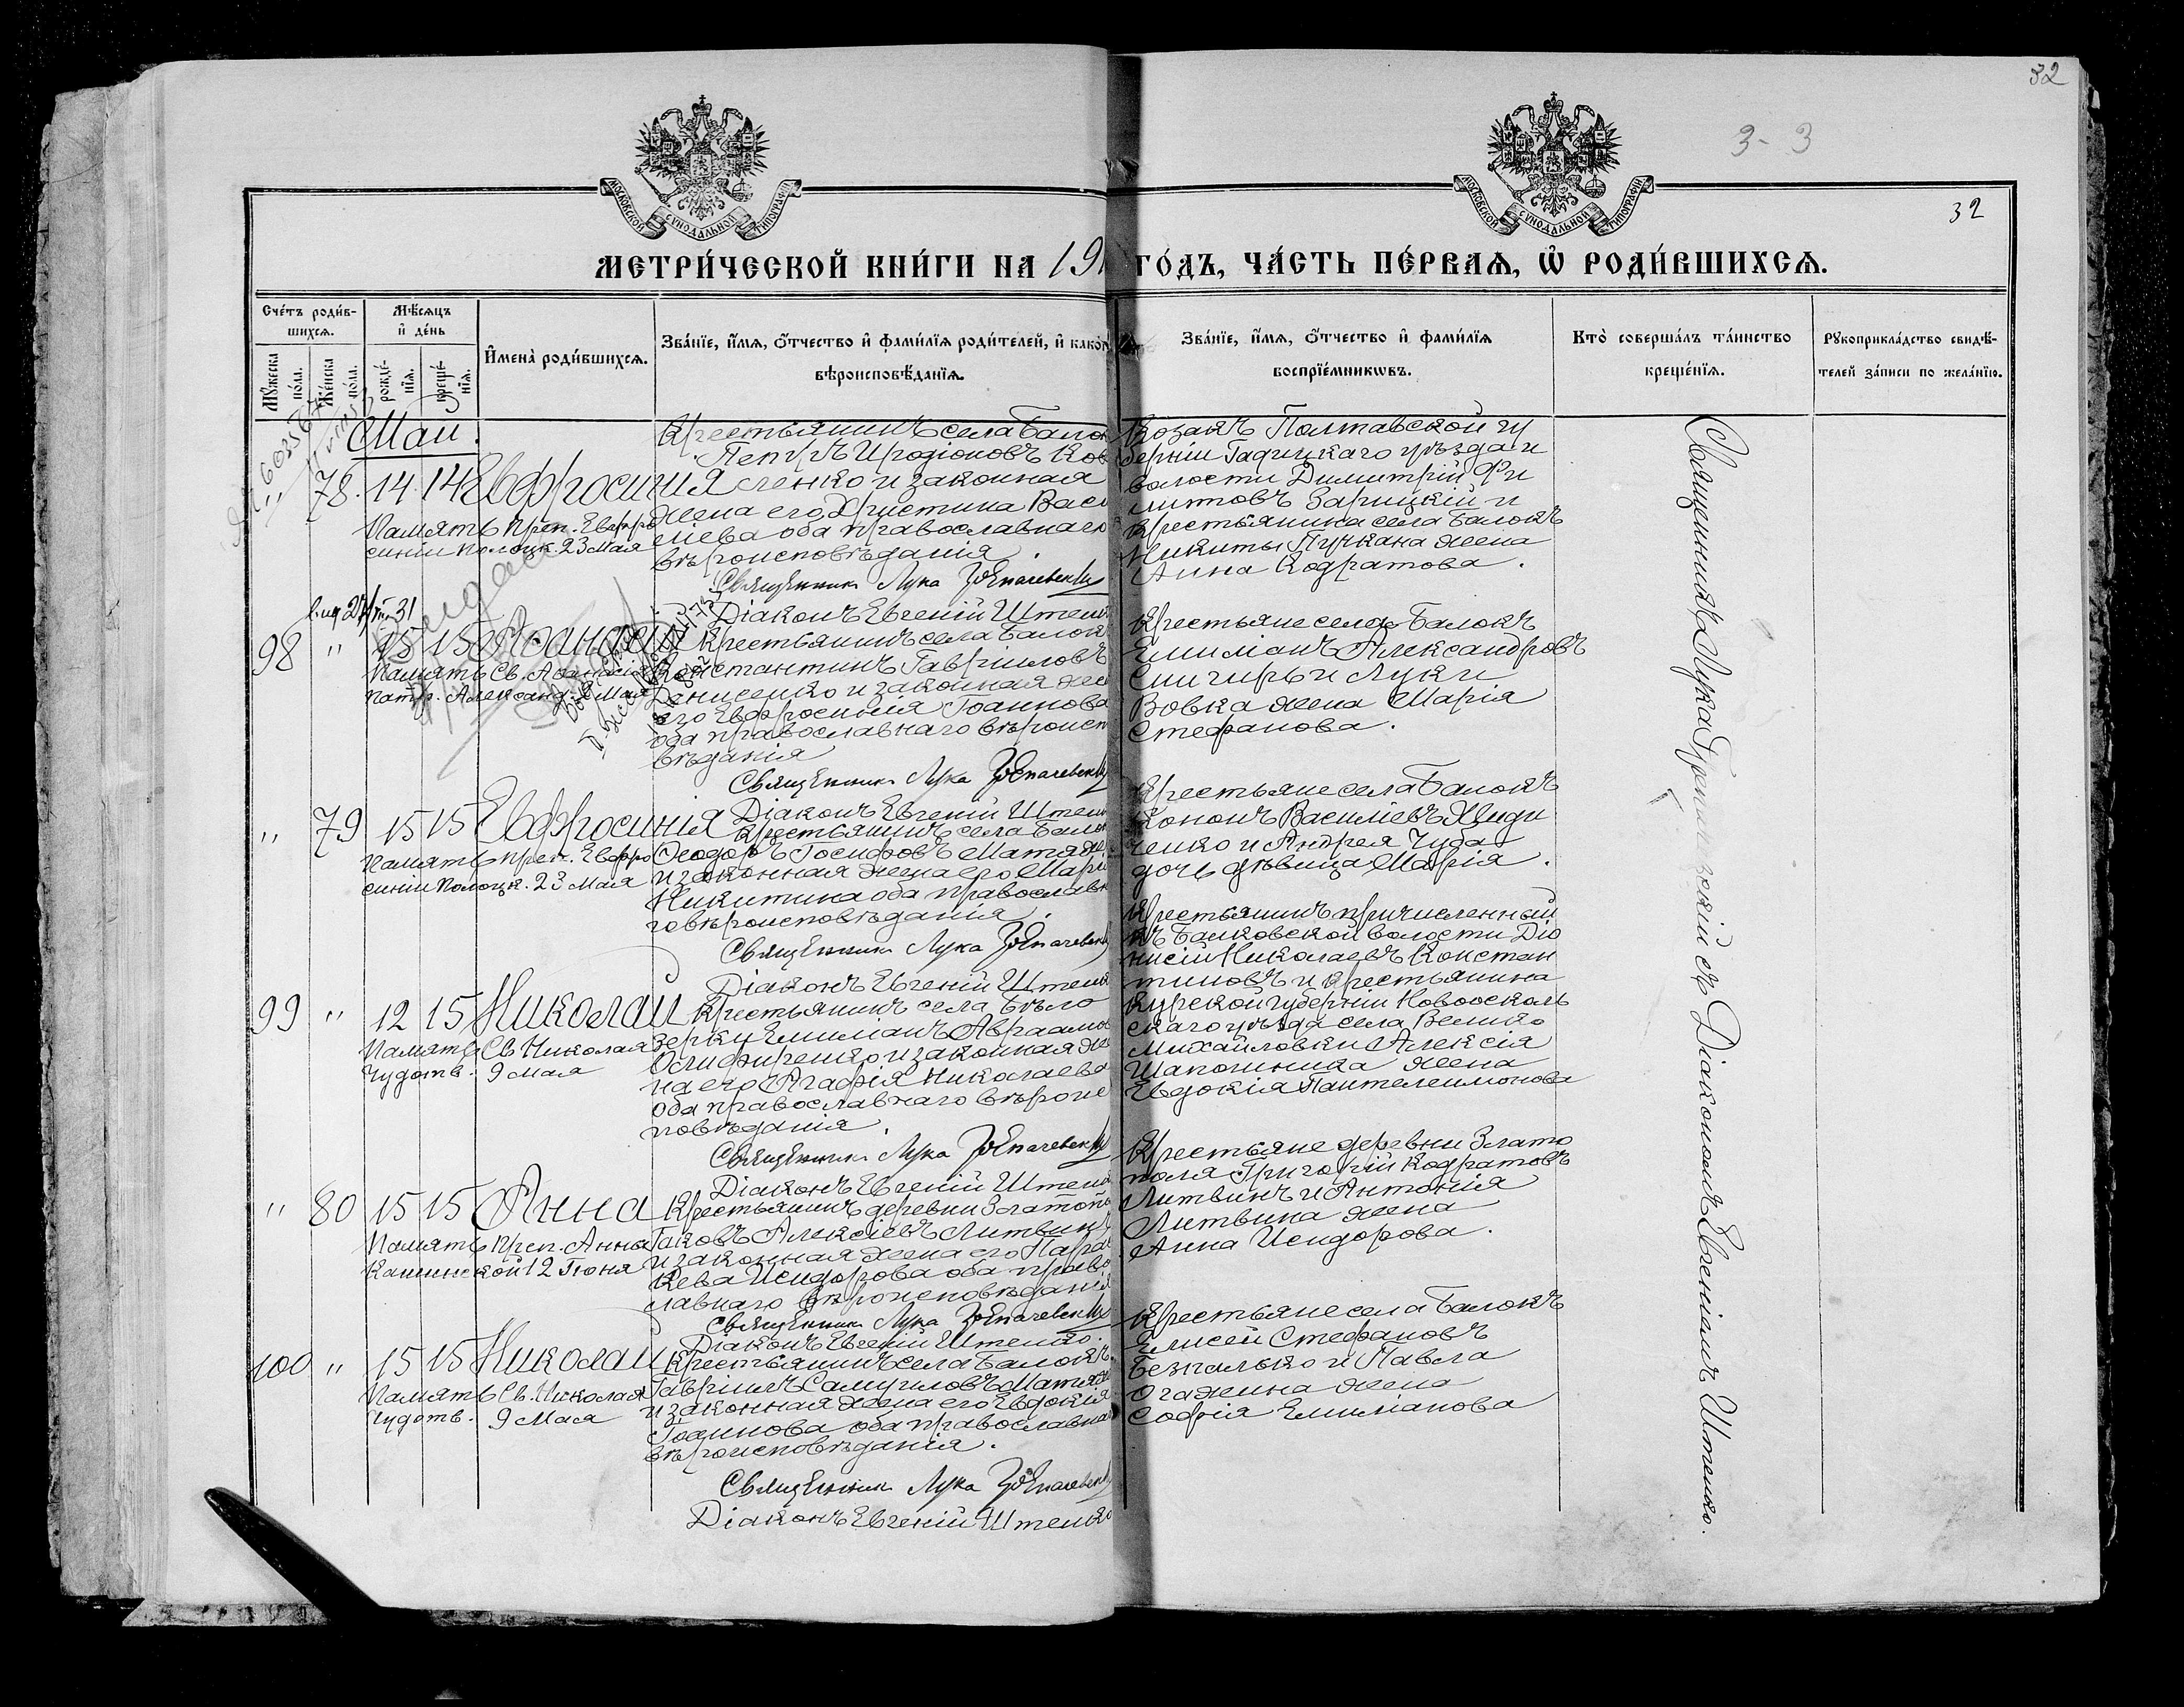 32
3-3
32
МОСКОВСКОЙ СУНОДАЛЬНОЙ ТИПОГРАФІИ
МОСКОВСКОЙ СУНОДАЛЬНОЙ ТИПОГРАФІИ
МЕТРИ́ЧЕСКОЙ КНИ́ГИ НА 191
ГО́ДЪ, ЧА́СТЬ ПЕ́РВАѦ, Ѡ҆ РОДИ́ВШИХСѦ.
Сче́тъ роди́в-
шихсѧ.
Мꙋ́жеска по́ла.
Же́нска по́ла.
Мѣ́сѧцъ
и҆ де́нь
рожде́-
нїѧ.
креще́-
нїѧ.
И҆мена̀ роди́вшихсѧ.
Зва́нїе, и҆́мѧ, ѻ҆́тчество и҆ фами́лїѧ роди́телей, и҆ како́г
вѣроисповѣ́данїѧ.
Зва́нїе, и҆́мѧ, ѻ҆́тчество и҆ фами́лїѧ
воспрїе́мникѡвъ.
Кто̀ соверша́лъ та́инство
креще́нїѧ.
Рꙋкоприкла́дство свидѣ́-
телей за́писи по жела́нїю.
Май.
" 78. 14. 14 Евфросинія
Память Преп. Евфро
синіи Полоцк. 23 Мая
Крестьянинъ села Балок
Петръ Иродіоновъ Ков
ленко и законная
жена его Христина Васи
ліева оба православнаго
вѣроисповѣданія.
Священник Лука
Діаконъ Евгеній Штенк
Козакъ Полтавской гу
берніи Гадицкаго уѣзда и
волости Димитрій Фи
липповъ Зарицкій и
крестьянина села Балокъ
Никиты Пучкана жена
Анна Кодратова.
98 " 15 15 Аѳанасій
Память Св. Аѳанасія
Патр. Александ. 2 Мая
Крестьянинъ села Балок
Константинъ Гавріиловъ
Денисенко и законная жен
его Евфросинія Іоаннова
оба православнаго вѣроисп
вѣданія
Священник Лука
Діаконъ Евгеній Штенк
Крестьяне села Балокъ
Емиліанъ Александровъ
Снигирь и Луки
Вовка жена Марія
Стефанова.
" 79 15 15 Евфросинія
Память преп. Евфро
синіи Полоцк. 23 Мая
Крестьянинъ села Балок
Ѳеодоръ Іосифовъ Матяж
и законная жена его Марія
Никитина оба православн
го вѣроисповѣданія.
Священник Лука
Діаконъ Евгеній Штенк
Крестьяне села Балокъ
Кононъ Василіевъ
ченко и Андрея Чуба
дочь дѣвица Марія.
99 " 12 15 Николай
Память Св. Николая
Чудотв. 9 Мая
Крестьянинъ села Бѣло
зерки Емиліанъ Авраамов
Олифиренко и законная же
на его Агафія Николаева
оба православнаго вѣроис
повѣданія.
Священник Лука
Діаконъ Евгеній Штенк
Крестьянинъ причисленный
къ Балковской волости Діо
нисій Николаевъ Констан
тиновъ и крестьянина
Курской губерніи Новооскольь
скаго уѣзда села Велико
михайловки Алексія
Шапошника жена
Евдокія Пантелеимонова
" 80 15 15 Анна
Память Преп. Анны
Кашинской 12 Іюня
Крестьянинъ деревни Златопо
Іаковъ Алексіевъ Литвин
и законная жена его Парас
кева Исидорова оба право
славнаго вѣроисповѣданія
Священник Лука
Діаконъ Евгеній Штенко.
Крестьяне деревни Злато
поля Григорій Кодратовъ
Литвинъ и Антонія
Литвина жена
Анна Исидорова.
100 " 15 15 Николай
Память Св. Николая
Чудотв. 9 Мая
Крестьянинъ села Балокъ
Гавріилъ Самуиловъ Матяж
и законная жена его Евдокія
Іоаннова оба православна
вѣроисповѣданія.
Священник Лука
Діаконъ Евгеній Штенко
Крестьяне села Балокъ
Елисей Стефановъ
Безпалько и Павла
жена
Софія Емиліанова
Священникъ Лука съ Діакономъ Евгеніемъ Штенко.